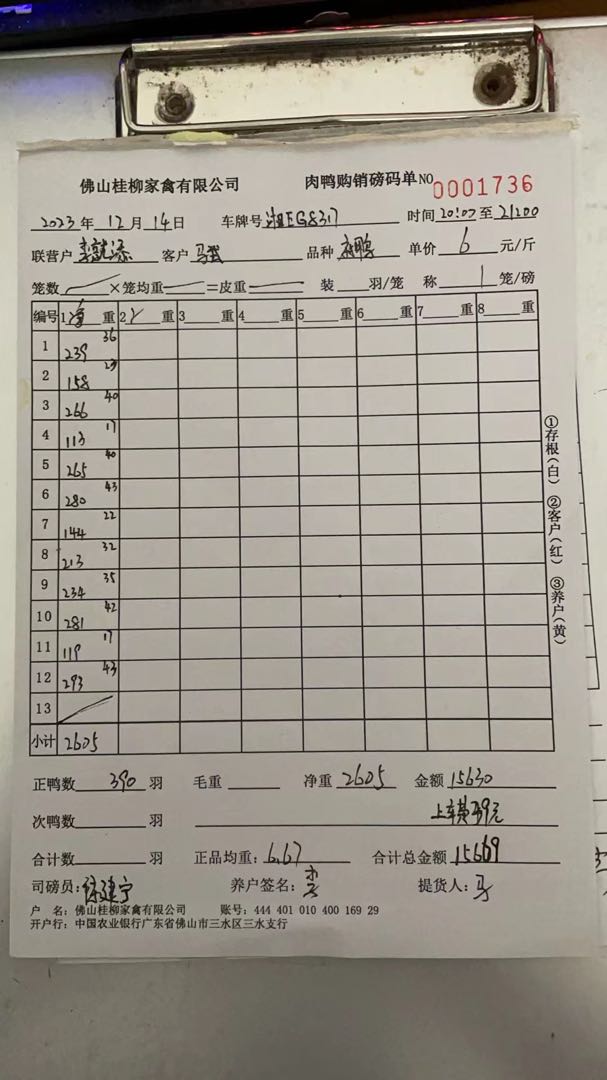 佛山桂柳家禽有限公司 肉鸭购销磅码单 NO 0001736
2023年 12月 14日 车牌号 湘EG8317 时间 20:00至 21:00
联营户 客户 品种 单价 6 元/斤
笼数 ×笼均重 =皮重 装 羽/笼 称 1 笼/磅
编号 1 净 重 2 重 3 重 4 重 5 重 6 重 7 重 8 重
1 239 36
2 158 23
3 266 40
4 113 17
5 265 40
6 280 43
7 144 22
8 213 32
9 234 35
10 281 42
11 119 17
12 293 43
13
小计 2605
正鸭数 390 羽 毛重 净重 2605 金额 15630
次鸭数 羽 上车费39元
合计数 羽 正品均重: 6.67 合计总金额 15669
司磅员: 徐建宁 养户签名: 李 提货人: 马
户 名: 佛山桂柳家禽有限公司 账号: 444 401 010 400 169 29
开户行: 中国农业银行广东省佛山市三水区三水支行
①存根(白) ②客户(红) ③养户(黄)